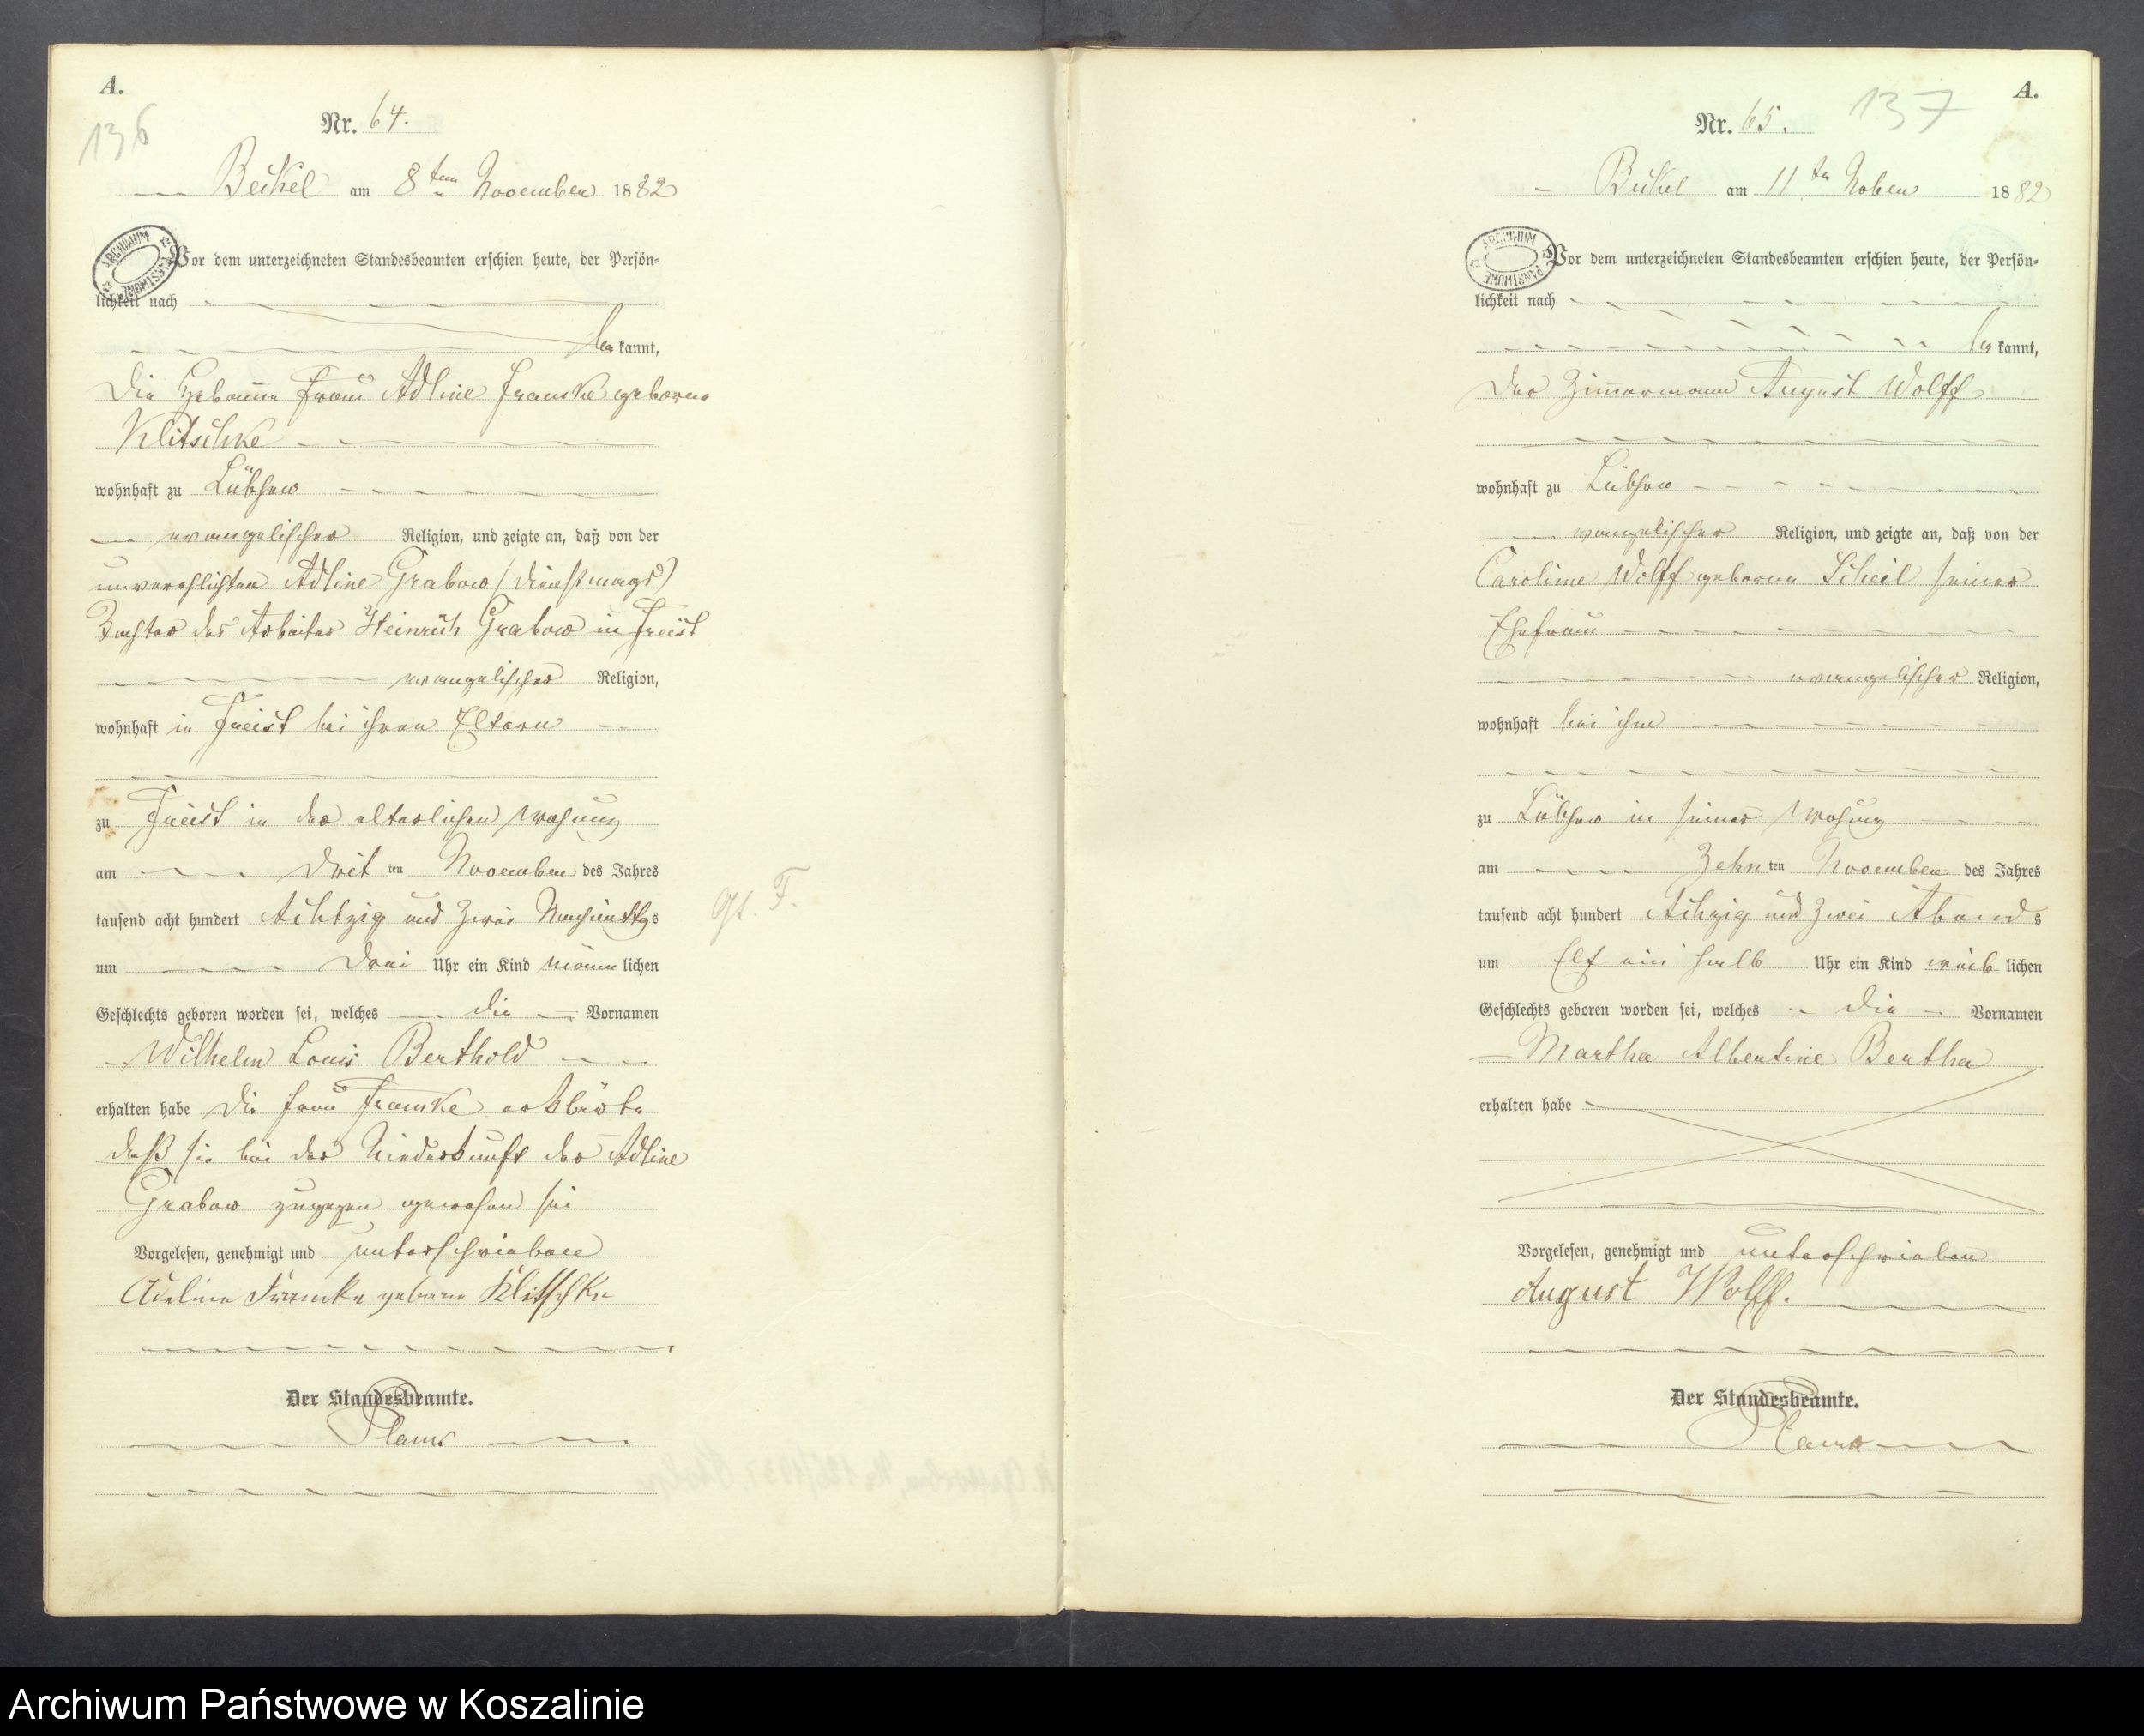 A.
136
Nr. 64.
Beckel am 8ten November 1882
ARCHIWUM PAŃSTWOWE
Vor dem unterzeichneten Standesbeamten erschien heute, der Persön-
lichkeit nach
be kannt,
die Hebamme Frau Adline Franke geborne
Klitschke
wohnhaft zu Lübzow
evangelischer Religion, und zeigte an, daß von der
unverehlichten Adline Grabow (Dienstmagd)
Tochter des Arbeiter Heinrich Grabow in Freist
evangelischer Religion,
wohnhaft in Freist bei ihren Eltern
zu Freist in der elterlichen Wohnung
am Drit ten November des Jahres
tausend acht hundert Achtzig und Zwei Nachmittags
um Drei Uhr ein Kind männ lichen
Geschlechts geboren worden sei, welches die Vornamen
Wilhelm Louis Berthold
erhalten habe Die Frau Franke erklärte
daß sie bei der Niederkunft der Adline
Grabow zugegen gewesen sei
Vorgelesen, genehmigt und unterschrieben
Adeline Franke geborne Klitschke
Der Standesbeamte.
gst. F.
A.
137
Nr. 65.
Beckel am 11ten Novbr 1882
ARCHIWUM PAŃSTWOWE
Vor dem unterzeichneten Standesbeamten erschien heute, der Persön-
lichkeit nach
be kannt,
der Zimmermann August Wolff
wohnhaft zu Lübzow
evangelischer Religion, und zeigte an, daß von der
Caroline Wolff geborne Scheil seiner
Ehefrau
evangelischer Religion,
wohnhaft bei ihm
zu Lübzow in seiner Wohnung
am Zehn ten November des Jahres
tausend acht hundert Achzig und Zwei Abends
um Elf ein halb Uhr ein Kind weib lichen
Geschlechts geboren worden sei, welches die Vornamen
Martha Albertine Bertha
erhalten habe
Vorgelesen, genehmigt und unterschrieben
August Wolff.
Der Standesbeamte.
Archiwum Państwowe w Koszalinie